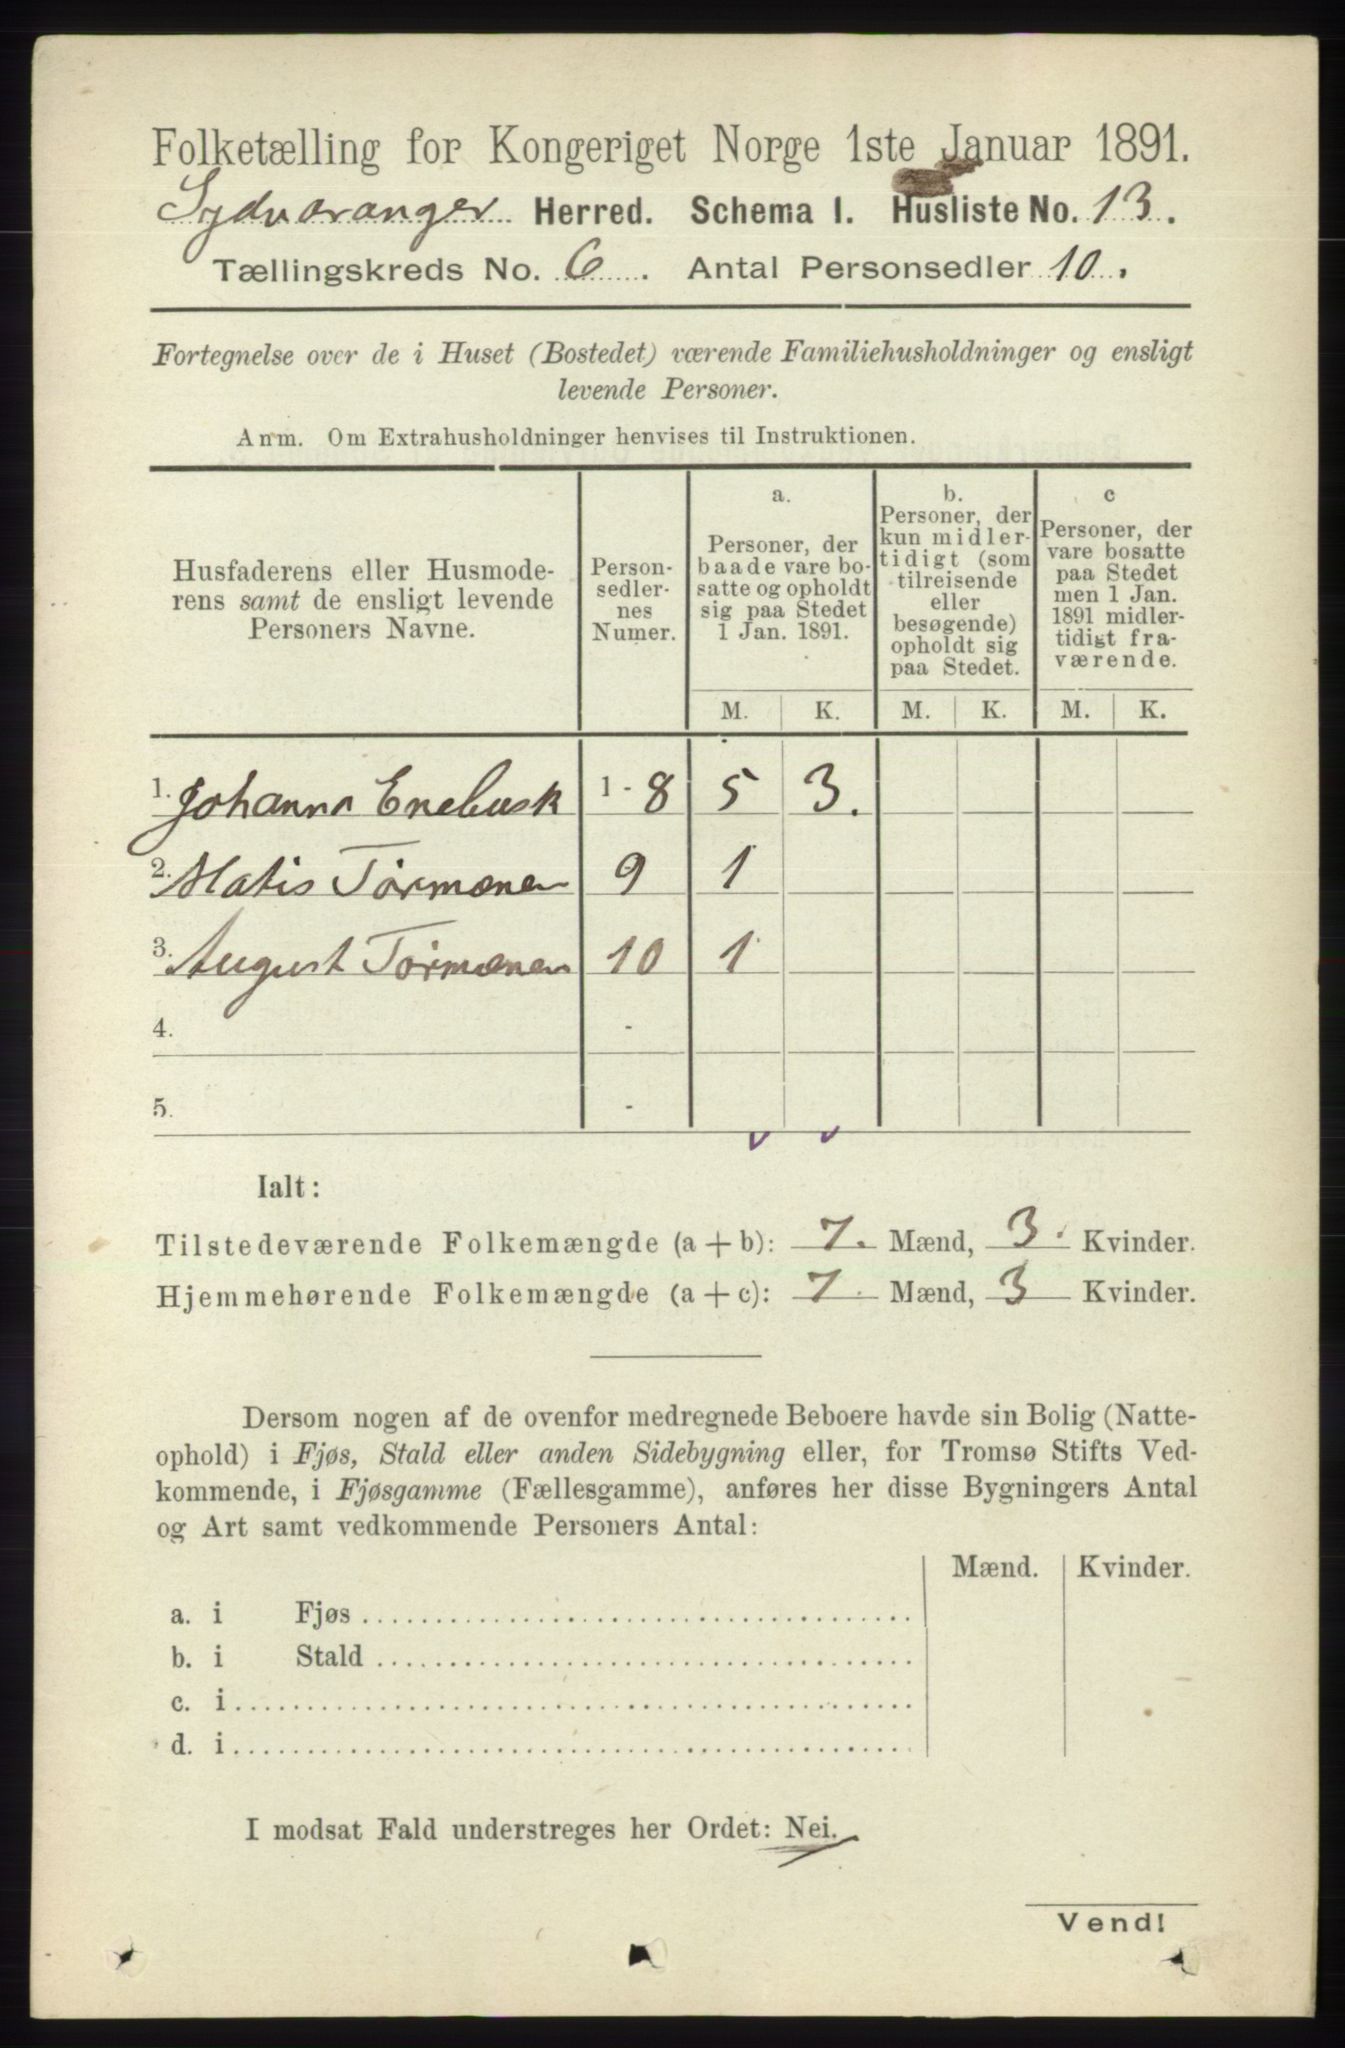 Folketælling for Kongeriget Norge 1ste Januar 1891.
Sydvaranger Herred. Schema I. Husliste No. 13.
Tællingskreds No. 6. Antal Personsedler 10.
Fortegnelse over de i Huset (Bostedet) værende Familiehusholdninger og ensligt
levende Personer.
Anm. Om Extrahusholdninger henvises til Instruktionen.
Husfaderens eller Husmode-
rens samt de ensligt levende
Personers Navne.
Person-
sedler-
nes
Numer.
a.
Personer, der
baade vare bo-
satte og opholdt
sig paa Stedet
1 Jan. 1891.
b.
Personer, der
kun midler-
tidigt (som
tilreisende
eller
besøgende)
opholdt sig
paa Stedet.
c
Personer, der
vare bosatte
paa Stedet
men 1 Jan.
1891 midler-
tidigt fra-
værende.
M. K. M. K. M. K.
1. Johanna Enebusk 1 - 8 5 3.
2. Matis Törmænen 9 1
3. August Törmænen 10 1
4. -
5. -
Ialt:
Tilstedeværende Folkemængde (a + b): 7. Mænd, 3. Kvinder.
Hjemmehørende Folkemængde (a + c): 7. Mænd, 3 Kvinder.
Dersom nogen af de ovenfor medregnede Beboere havde sin Bolig (Natte-
ophold) i Fjøs, Stald eller anden Sidebygning eller, for Tromsø Stifts Ved-
kommende, i Fjøsgamme (Fællesgamme), anføres her disse Bygningers Antal
og Art samt vedkommende Personers Antal:
Mænd. Kvinder.
a. i Fjøs
b. i Stald
c. i
d. i
I modsat Fald understreges her Ordet: Nei.
Vend!